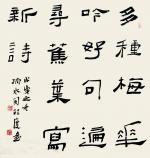 多種梅華
吟好句遍
尋蕉葉寫
新詩